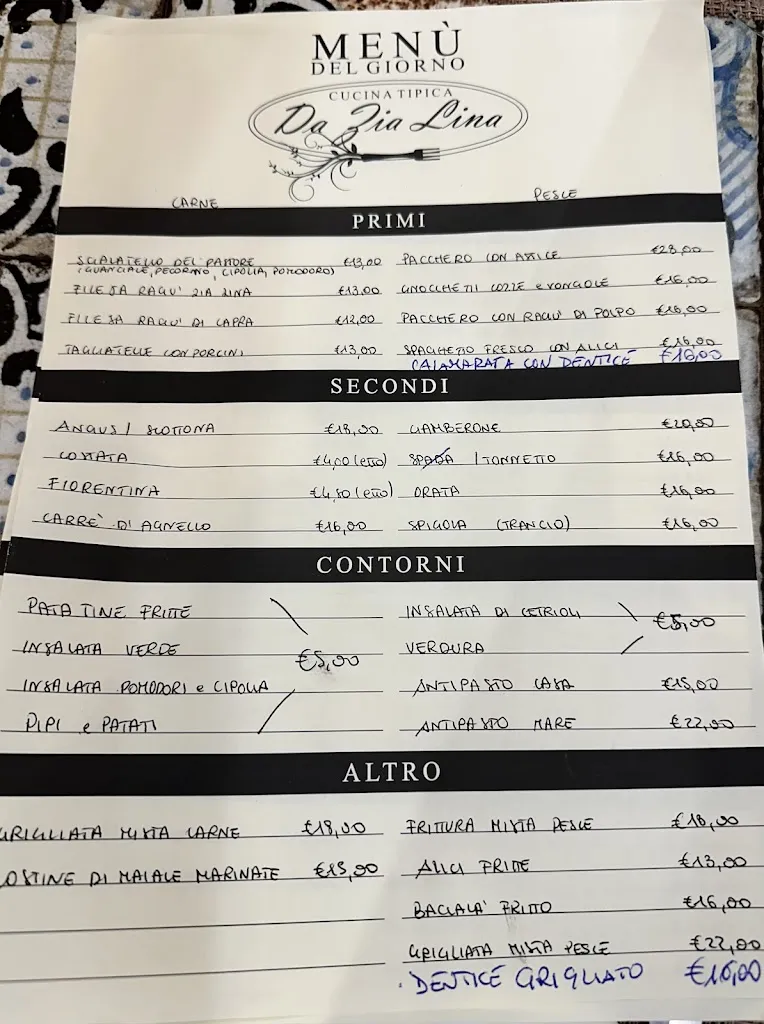 MENÙ
DEL GIORNO
CUCINA TIPICA
Da Zia Lina
CARNE
PESCE
PRIMI
SCIALATELLO DEL PASTORE €13,00
(GUANCIALE, PECORINO, CIPOLLA, POMODORO)
FILEJA RAGU' ZIA LINA €13,00
FILEJA RAGU' DI CAPRA €12,00
TAGLIATELLE CON PORCINI €13,00
PACCHERO CON ASTICE €28,00
GNOCCHETTI COZZE e VONGOLE €16,00
PACCHERO CON RAGU' DI POLPO €16,00
SPAGHETTO FRESCO CON ALICI €16,00
CALAMARATA CON DENTICE €16,00
SECONDI
ANGUS / SCOTTONA €18,00
COSTATA €4,00 (etto)
FIORENTINA €4,50 (etto)
CARRE' DI AGNELLO €16,00
GAMBERONE €20,00
SPADA / TONNETTO €16,00
ORATA €16,00
SPIGOLA (TRANCIO) €16,00
CONTORNI
PATATINE FRITTE
INSALATA VERDE
€5,00
INSALATA POMODORI e CIPOLLA
PIPI e PATATI
INSALATA DI CETRIOLI
€5,00
VERDURA
ANTIPASTO CASA €15,00
ANTIPASTO MARE €22,00
ALTRO
GRIGLIATA MISTA CARNE €18,00
COSTINE DI MAIALE MARINATE €15,00
FRITTURA MISTA PESCE €18,00
ALICI FRITTE €13,00
BACCALA' FRITTO €16,00
GRIGLIATA MISTA PESCE €22,00
. DENTICE GRIGLIATO €16,00